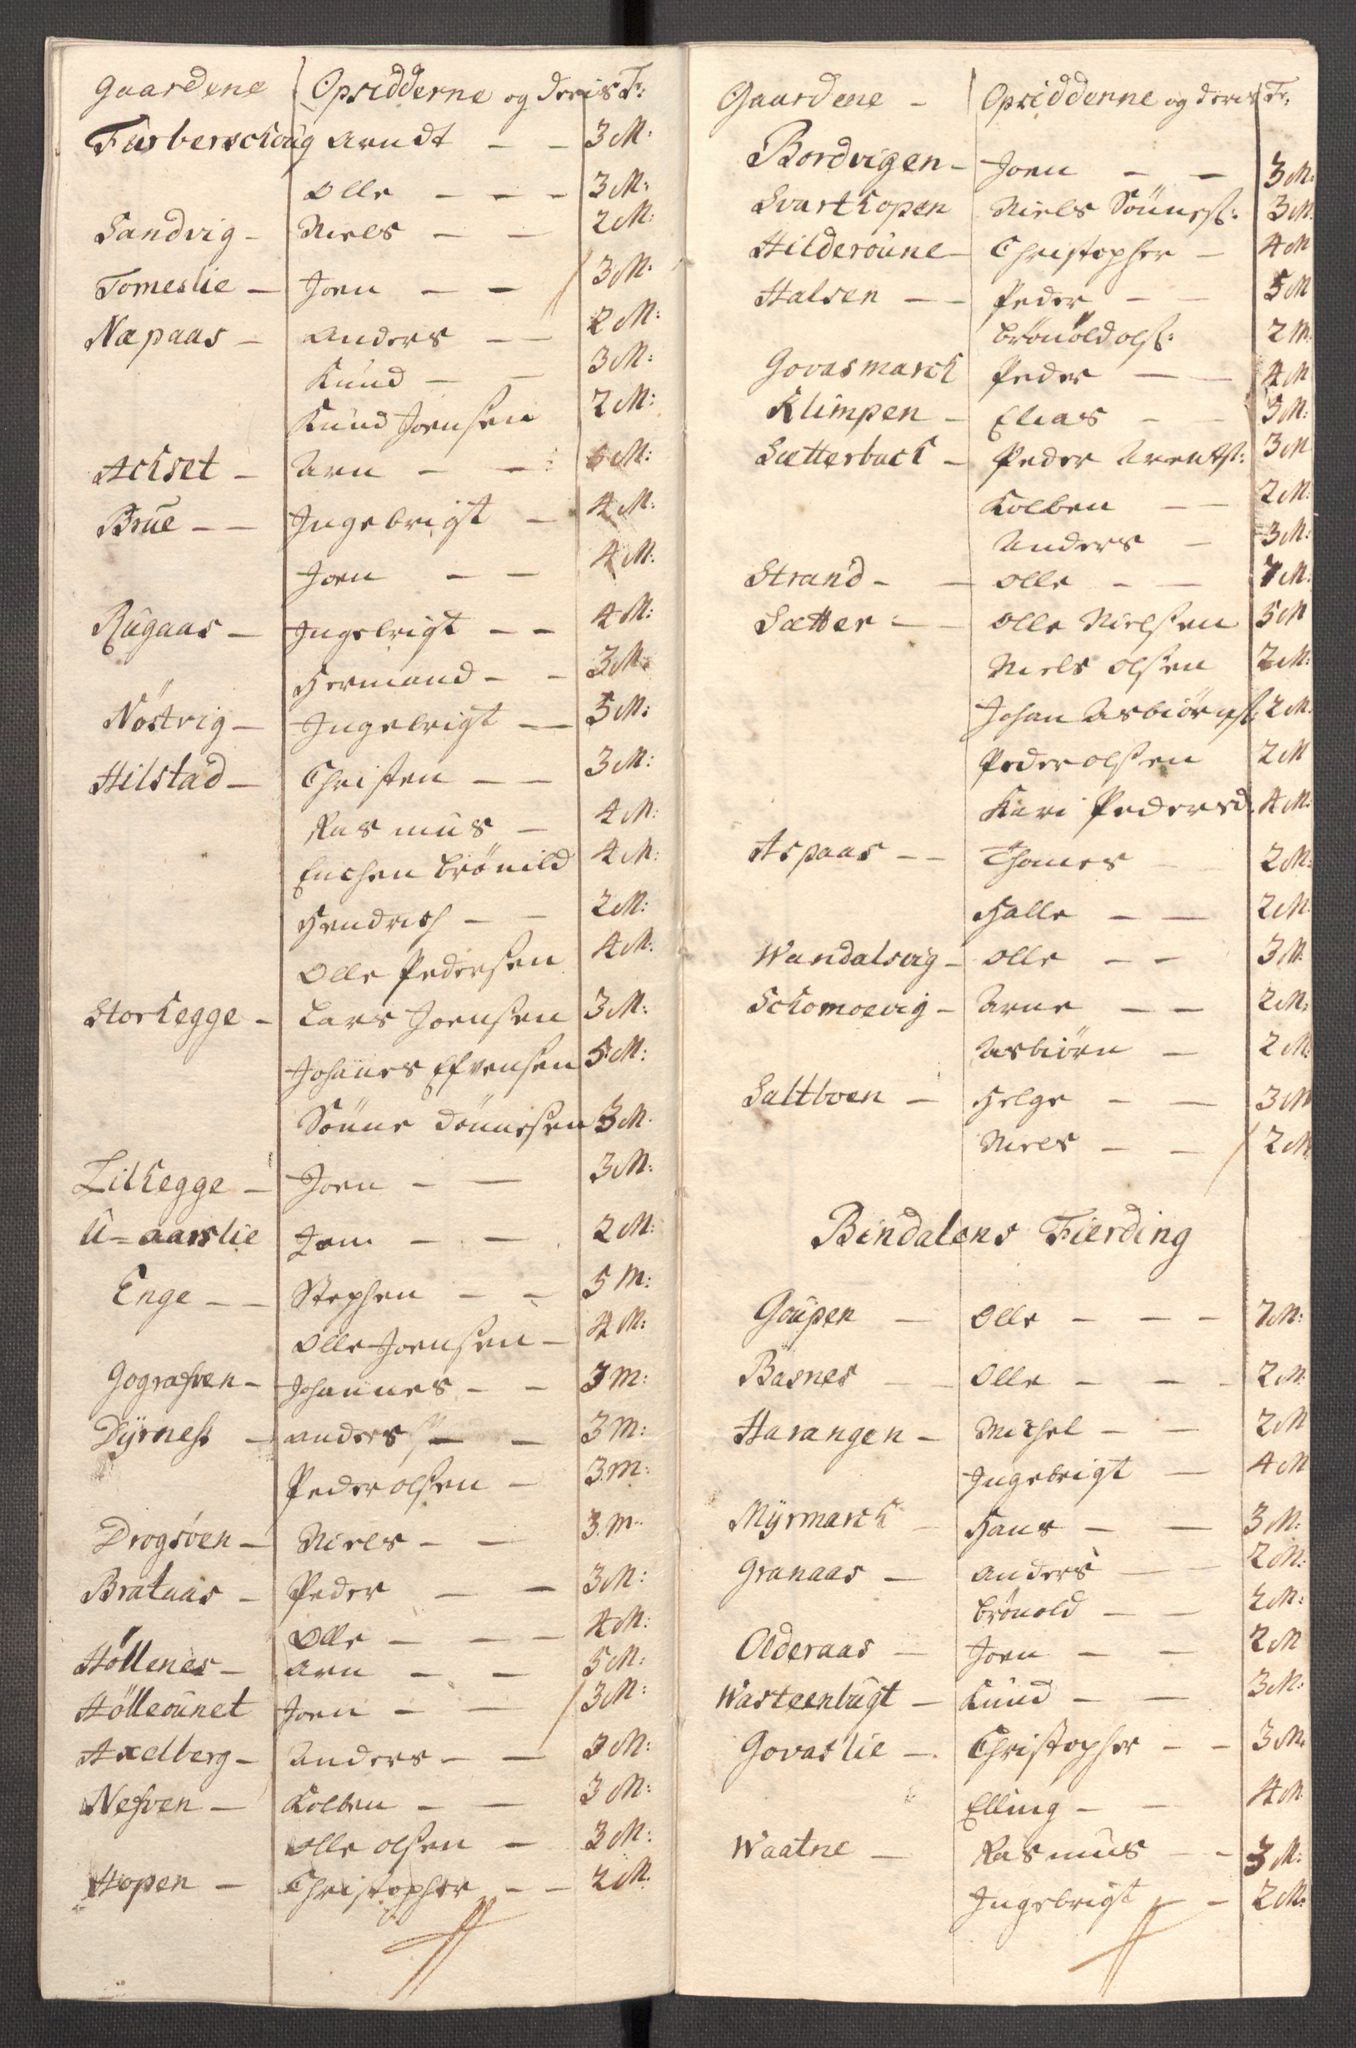 Gaardene Opsidderne og deris Fr:
Farberschoug Arndt - - 3 M:
Olle - - - 3 M:
Sandvig - Niels - - 2 M:
Tomeslie - Joen - - 3 M:
Næpaas - Anders - - 2 M:
Knud - - 3 M:
Knud Joensen 2 M:
Achset - Arn - - M:
Brue - - Ingebrigt - 4 M:
Joen - - 4 M:
Rugaas - Ingebrigt - - 4 M:
Hermand - - 3 M:
Nöstvig - Ingebrigt - 5 M:
Hilstad - Christen - - 3 M:
Rasmus - 4 M:
Enchen brönild 4 M:
Hendrich - - 2 M:
Olle Pedersen 4 M:
Storhegge - Lars Joensen 3 M:
Johanes Efvensen 5 M:
Sönne dönnesen 3 M:
Lilhegge - Joen - - 3 M:
U-aarslie Joen - - 2 M:
Enge - - Stephen - - 5 M:
Olle Joensen - 4 M:
Gografven - Johannes - - 3 M:
Dÿrness - anders - - 3 M:
Peder olsen - 3 M:
Drogsöen - Niels - - 3 M:
Brataas - Peder - - 3 M:
Olle - - - 4 M:
Höllenes - Arn - - 5 M:
Hölleounet Joen - - 3 M:
Axelberg - Anders - - 3 M:
Nefven - Kolben - - 3 M:
Olle olsen - 3 M:
Hopen - Christopher - - 2 M:
Gaardene - Opsidderne og deris Fr:
Bordvigen - Joen - - 3 M:
Svarthopen Niels Sönnes: 3 M:
Hilderoune - Christopher - 4 M
Halsen - - Peder - - 5 M
brönold ols: 2 M:
Govasmarch Peder - - 4 M
Klimpen - Elias - - 3 M:
Sætterbach - Peder Arents: 3 M
Kolben - - 2 M:
Anders - 3 M:
Strand - - Olle - - 7 M:
Sætter - - Olle Nielsen 5 M
Niels olsen 2 M:
Johan Asbiörns: 2 M:
Peder olsen 2 M
Kari Pedersd. 4 M:
Aspaas - - Thomes - 2 M:
Halle - - 2 M.
Wandalsvig - Olle - - 3 M.
Schomoevig - Arne - - 2 M:
Asbiörn - 2 M:
Saltboen - Helge - - 3 M
Niels - - 2 M
Bindalens Fierding
Goupen - Olle - - - 7 M:
Basnes - Olle - - - 2 M.
Harangen - Michel - - 2 M
Ingebrigt - 4 M
Mÿrmarch - Hans - - 3 M:
Granaas - anders - - 2 M:
brönold - - 2 M:
Olderaas - Joen - - 2 M
Wasteenbugt - Knud - - 3 M:
Govaslie - Christopher - - 3 M:
Elling - - 4 M
Waatne - Rasmus - - 3 M:
Ingebrigt - - 2 M: